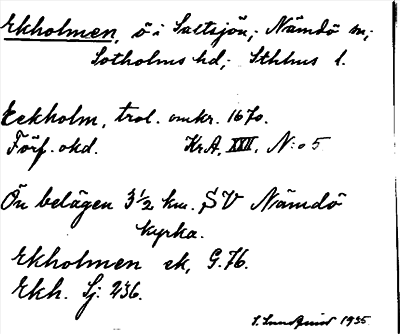 Ekholmen, ö i Saltsjön; Nämdö sn;
Sotholms hd; Sthlms l.
Eckholm, trol. omkr. 1670.
Förf. okd. KrA, XXII, N:o 5
Ön belägen 3 1/2 km. SV Nämdö
kyrka.
Ekholmen ek, G.76.
Ekh. Sj. 236.
S. Lundquist 1935